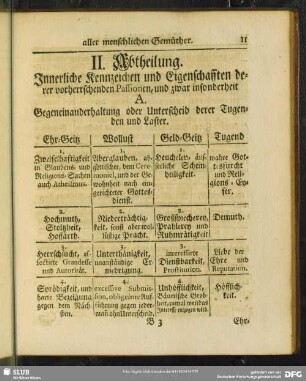 aller menschlichen Gemüther. 11
II. Abtheilung.
Innerliche Kennzeichen und Eigenschafften de-
rer vorherrschenden Passionen, und zwar insonderheit
A.
Gegeneinanderhaltung oder Unterscheid derer Tugen-
den und Laster.
Ehr-Geitz Wollust Geld-Geitz Tugend
1.
Zweifelhaftigkeit
in Glaubens- und
Religions-Sachen
auch Atheismus.
1.
Aberglauben,
göttischer, dem Cere-
moniel, und der Ge-
wohnheit nach ein-
gerichteter Gottes-
dienst.
1.
Heucheley,
serliche Schein-
heiligkeit.
1.
wahre Got-
tesfurcht
und Reli-
gions-Ey-
fer.
2.
Hochmuth,
Stoltzheit,
Hoffarth.
2.
Niederträchtig-
keit, sonst
Pracht.
2.
Grosssprecherey,
Prahlerey und
Ruhmrätigkeit
2.
Demuth.
3.
Herrschsucht, af-
fectirte Grandesse
und Autorität.
3.
Unterthänigkeit,
unanständige Er-
niedrigung.
3.
interessirte
Dienstbarkeit,
Prostitution.
3.
Liebe der
Ehre und
Reputation.
4.
Sprödigkeit, und
harte Bezeigung
gegen dem Näch-
sten.
4.
excessive Submis-
sion, obligeante Auf-
führung gegen jeder-
mann ohnUnterschied.
4.
Unhöflichkeit,
Bäurische Grob-
heit, zumal wenn das
Interesse
4.
Höflich-
keit.
B 3 Ehr-
SLUB
Wir führen Wissen.
gefördert von der
Deutschen Forschungsgemeinschaft